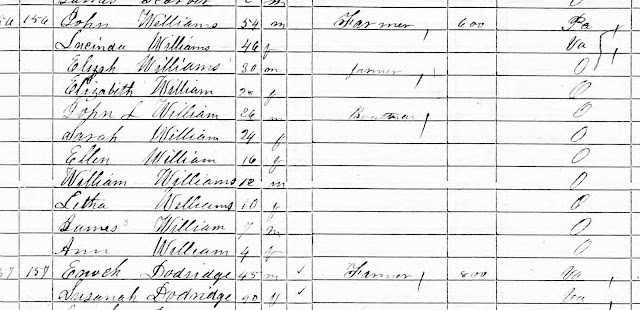 156 John Williams 54 m Farmer 600 Pa
Lucinda Williams 46 f Va
Elijah Williams 30 m farmer O
Elizabeth William 28 f O
John L William 26 m Boatman O
Sarah William 24 f O
Ellen William 16 f O
William Williams 12 m O
Letha Williams 10 f O
James William 7 m O
Ann William 4 f O
157 Enoch Dodridge 45 m Farmer 800 Va
Susanah Dodridge 40 f Va